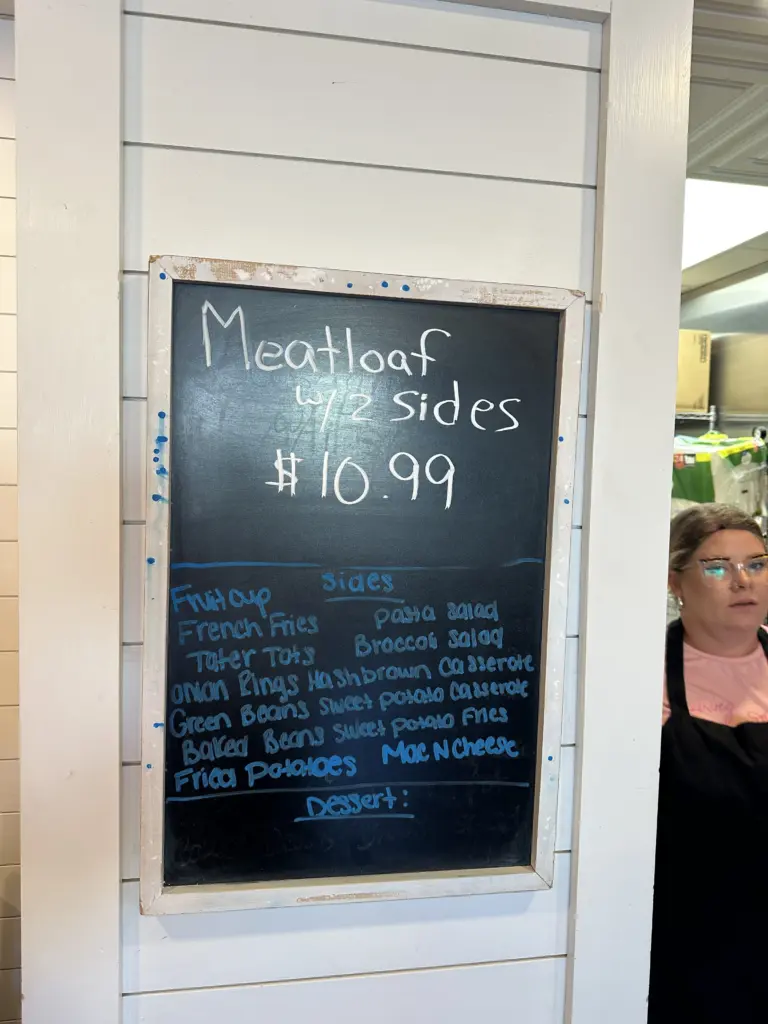 Meatloaf
w/2 sides
$10.99
sides
Fruit cup
French Fries Pasta salad
Tater Tots Broccoli salad
Onion Rings Hashbrown Casserole
Green Beans sweet potato casserole
Baked Beans sweet potato Fries
Fried Potatoes Mac N Cheese
Dessert: